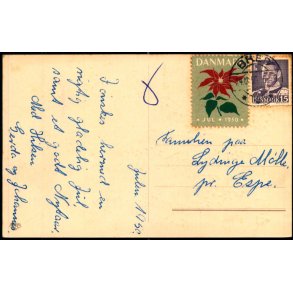 I ønskes hermed en
rigtig glædelig Jul,
samt et godt Nytaar.
Med Hilsen
Gerda og Johannes
Julen 1950
DANMARK
JUL 1950
DANMARK 15
Lydinge Mølle,
pr. Espe.